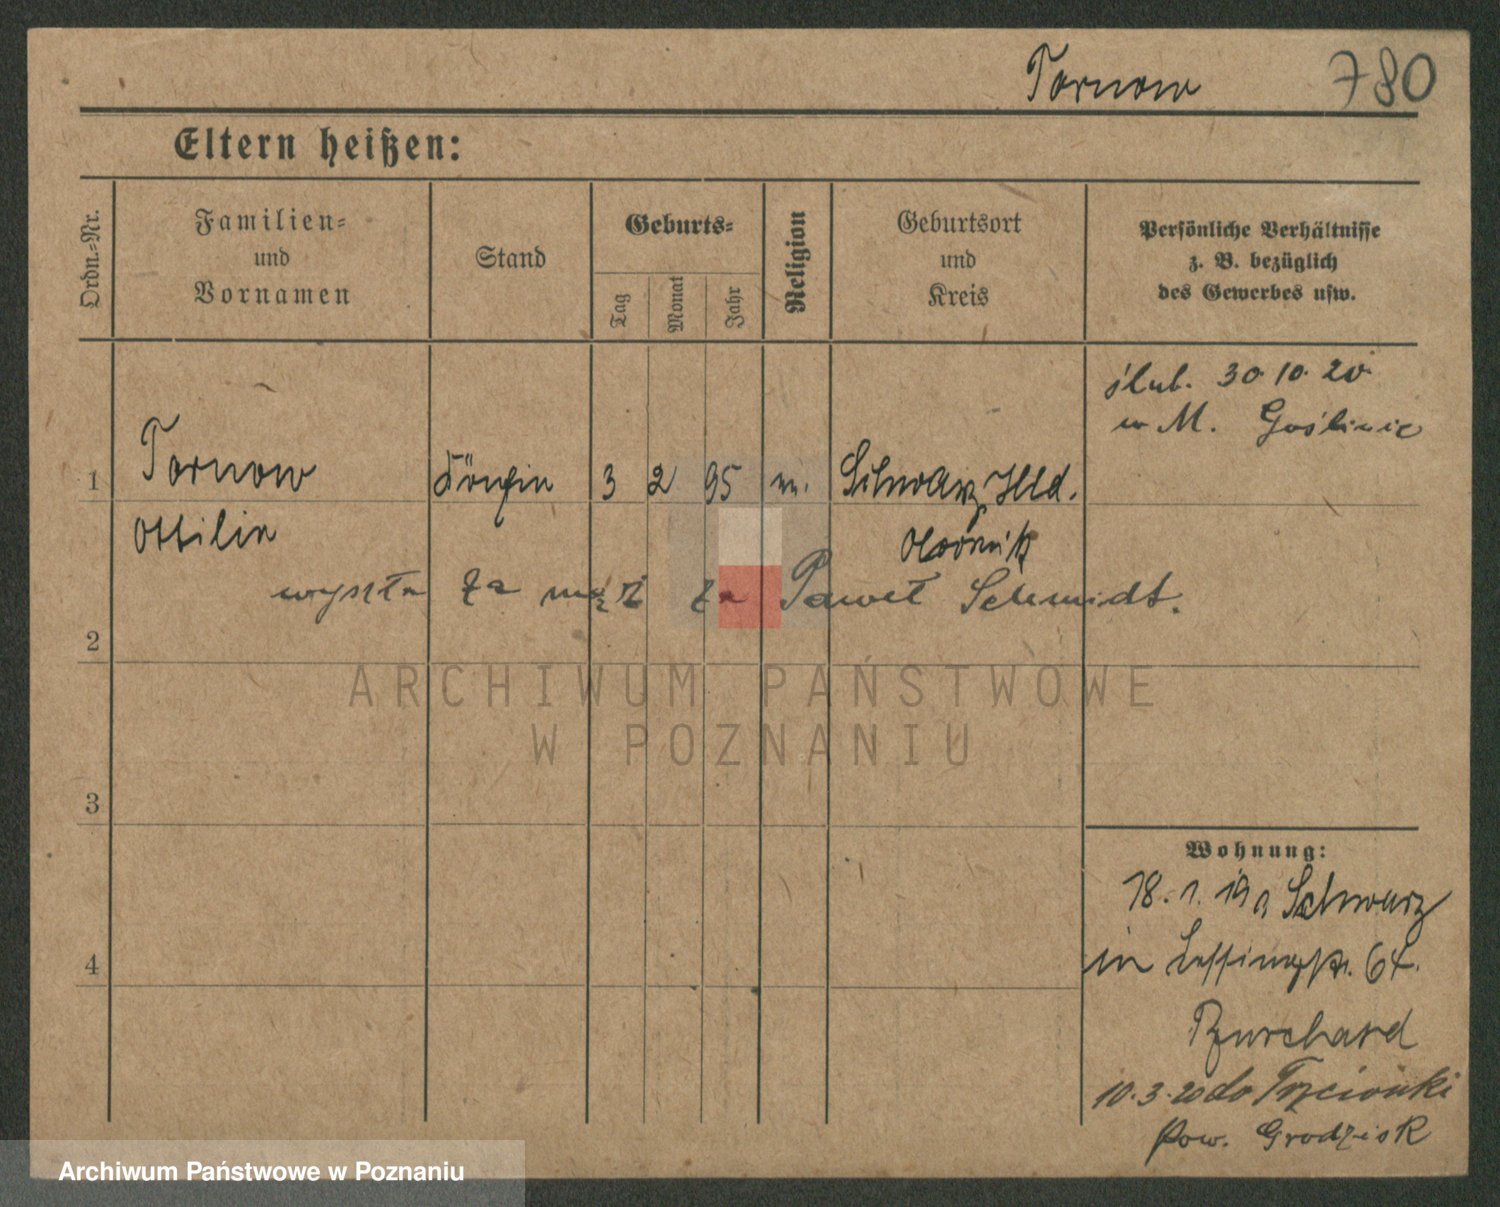 Tornow 780
Eltern heißen:
Ordn.-Nr.
Familien-
und
Vornamen
Stand
Geburts-
Tag
Monat
Jahr
Religion
Geburtsort
und
Kreis
Persönliche Verhältnisse
z. B. bezüglich
des Gewerbes usw.
ślub. 30 10. 20
w M. Goślinie
1 Tornow Köchin 3 2 95 Schwarz Hld.
Ottilie Obornik
wyszła za mąż za Paweł Schmidt.
2
3
4
Wohnung:
18. 1. 19 Schwarz
in Lessingstr. 64.
Burchard
10. 3. 20 do Trzcionki
pow. Grodzisk
ARCHIWUM PAŃSTWOWE
W POZNANIU
Archiwum Państwowe w Poznaniu